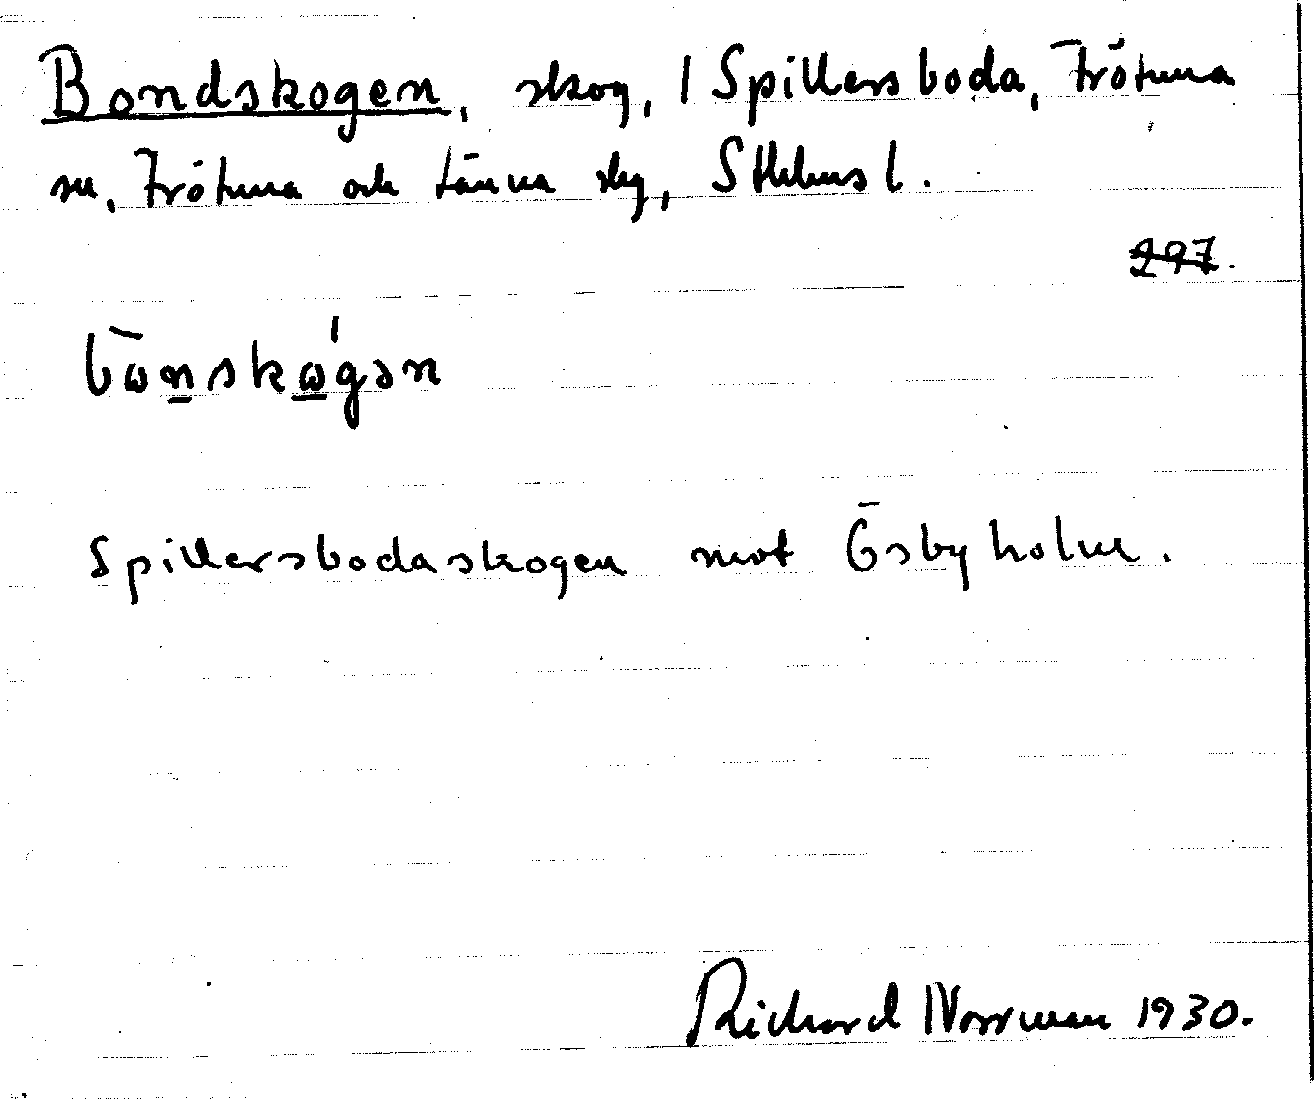 Bondskogen, skog, 1 Spillersboda, Frötuna
sn, Frötuna och Länna skg, Sthlms l.
297.
bōnskógən
Spillersbodaskogen mot Ösbyholm.
Richard Norrman 1930.